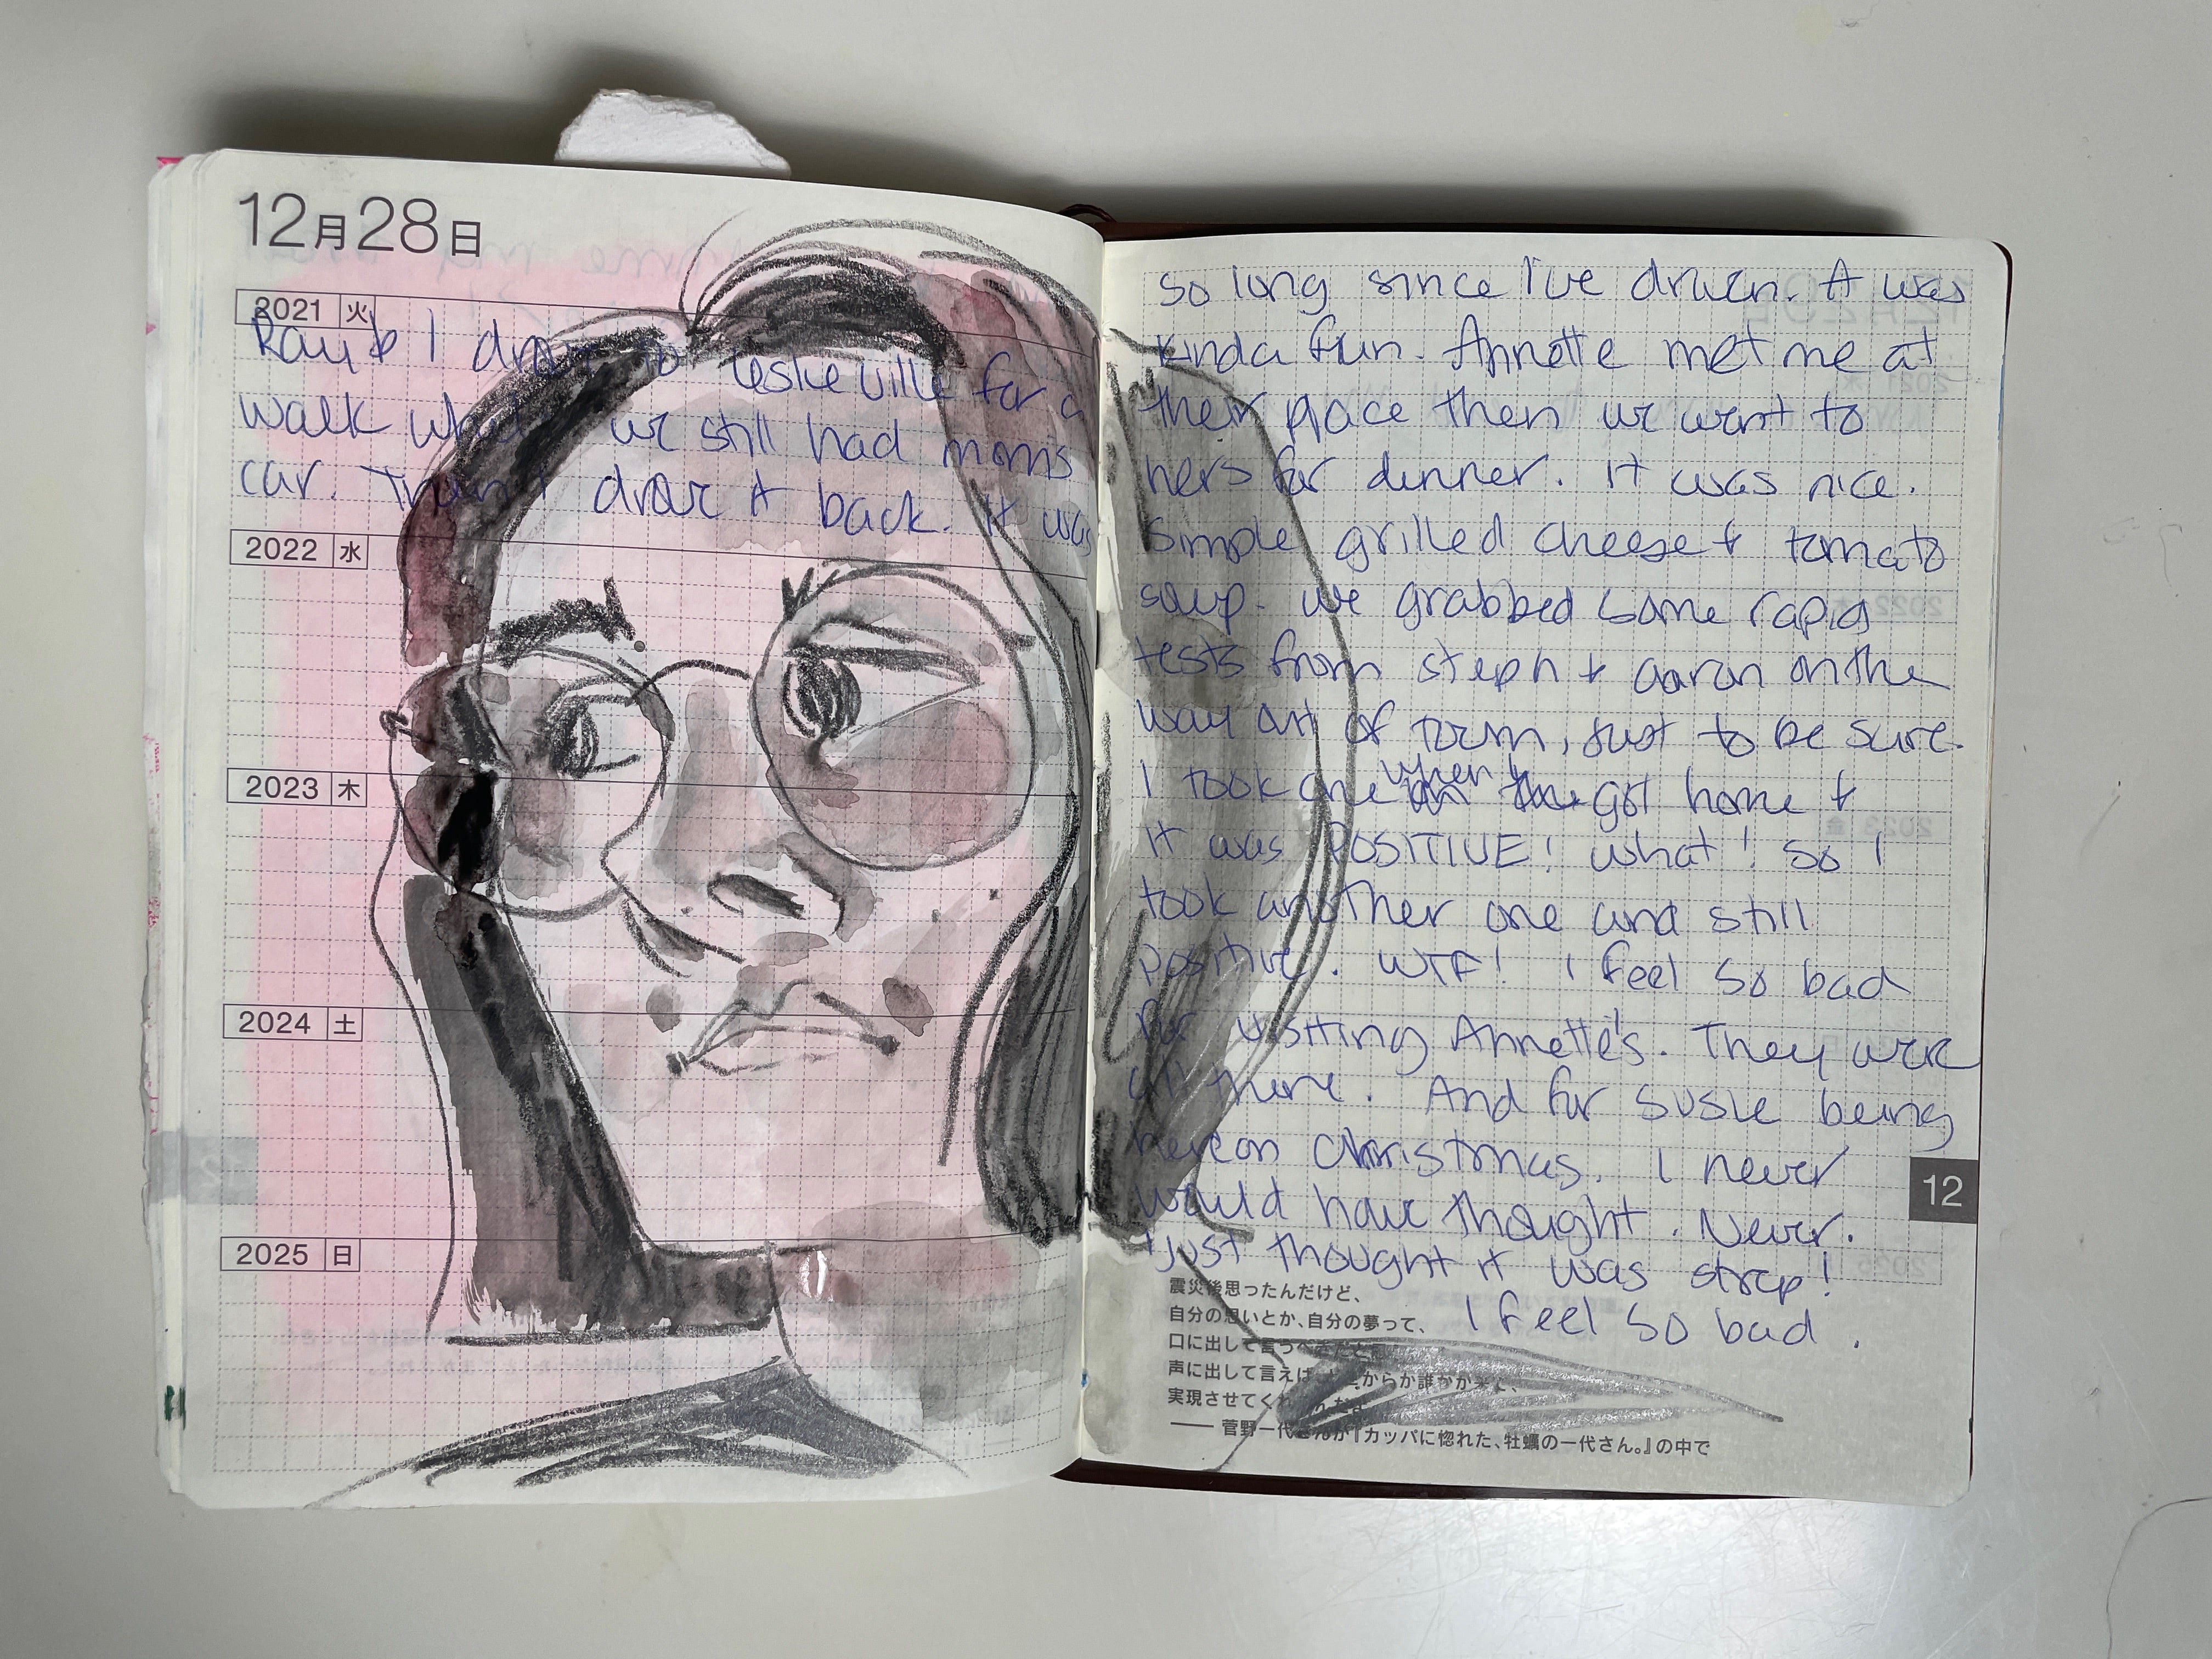 12月28日
2021 火
Ray & I drove to Leslieville for a
walk while we still had moms
car. Then I drove it back. It was
2022 水
2023 木
2024 土
2025 日
so long since I've driven. It was
kinda fun. Annette met me at
their place then we went to
hers for dinner. It was nice.
Simple grilled cheese & tomato
soup. We grabbed some rapid
tests from Steph & Aaron on the
way out of town, just to be sure.
I took one when I got home &
it was POSITIVE! What! So I
took another one and still
positive. WTF! I feel so bad
for visiting Annette's. They were
all there. And for Susie being
here on Christmas. I never
would have thought. Never.
I just thought it was strep!
I feel so bad.
震災後思ったんだけど、
自分の思いとか、自分の夢って、
口に出して言うべきだと
声に出して言えば、からか誰かが来て、
実現させてくれんだよ
── 菅野一代さんが『カッパに惚れた、牡蠣の一代さん。』の中で
12